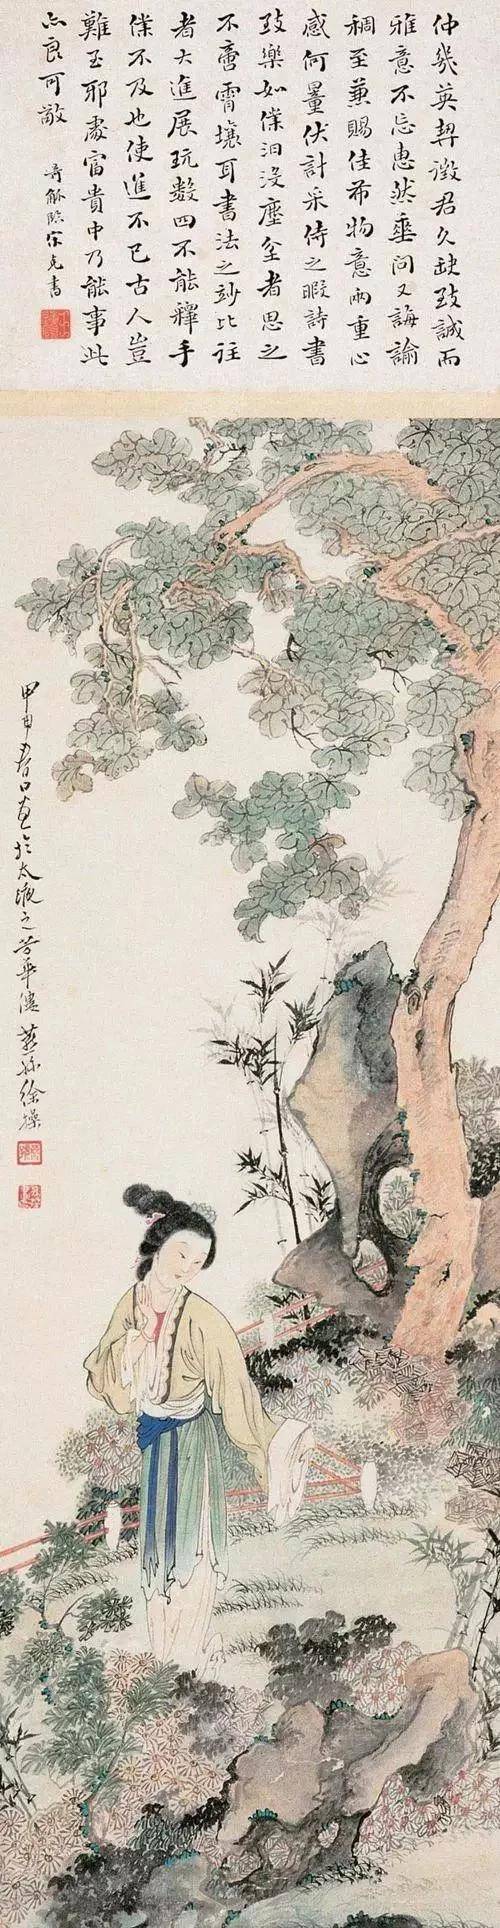 仲幾英契徵君久缺致誠而
雅意不忘惠然垂问又誨諭
稠至兼賜佳希物意兩重心
感何量伏計采侍之暇詩書
致樂如僕汩沒塵坌者思之
不啻霄壤耳書法之妙比往
者大進展玩數四不能釋手
僕不及也使進不已古人豈
難至耶處富貴中乃能事此
良可敬 臨宋克書
甲申春日画於太液之芳華 燕孫徐操